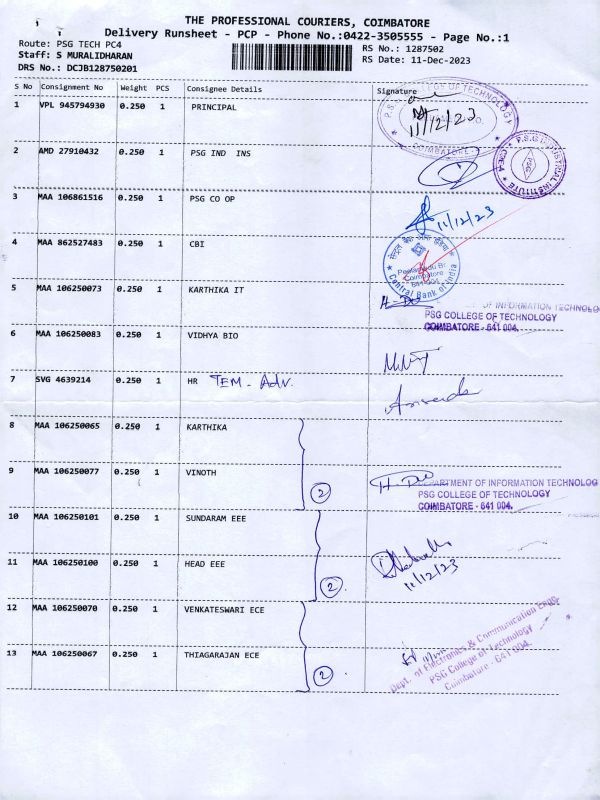 THE PROFESSIONAL COURIERS, COIMBATORE
Delivery Runsheet - PCP - Phone No.:0422-3505555 - Page No.:1
Route: PSG TECH PC4
RS No.: 1287502
Staff: S MURALIDHARAN
RS Date: 11-Dec-2023
DRS No.: DCJB128750201
S No Consignment No Weight PCS Consignee Details Signature
1 VPL 945794930 0.250 1 PRINCIPAL
P.S.G. COLLEGE OF TECHNOLOGY
11/12/23
COIMBATORE
2 AMD 27910432 0.250 1 PSG IND INS
P.S.G INDUSTRIAL INSTITUTE
PSG
3 MAA 106861516 0.250 1 PSG CO OP
11/12/23
4 MAA 862527483 0.250 1 CBI
Coimbatore
Central Bank of India
5 MAA 106250073 0.250 1 KARTHIKA IT
OF INFORMATION TECHNOLOG
PSG COLLEGE OF TECHNOLOGY
COIMBATORE - 641 004.
6 MAA 106250083 0.250 1 VIDHYA BIO
7 SVG 4639214 0.250 1 HR TEM - Adv.
8 MAA 106250065 0.250 1 KARTHIKA
9 MAA 106250077 0.250 1 VINOTH
2
DEPARTMENT OF INFORMATION TECHNOLOG
PSG COLLEGE OF TECHNOLOGY
COIMBATORE - 641 004.
10 MAA 106250101 0.250 1 SUNDARAM EEE
11 MAA 106250100 0.250 1 HEAD EEE
2
11/12/23
12 MAA 106250070 0.250 1 VENKATESWARI ECE
13 MAA 106250067 0.250 1 THIAGARAJAN ECE
2
Dept. of Electronics & Communication Engg.
PSG College of Technology
Coimbatore - 641 004.